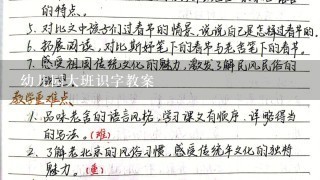 的特点。
5. 对比文中孩子们过春节的情景,说说自己是怎样过春节的。
6. 拓展阅读,对比斯好笔下的春节与老舍笔下的春节。
7. 感受祖国传统文化的魅力,激发了解民风民俗的
幼儿园大班识字教案
教学重难点
1. 品味老舍的语言风格,学习课文有顺序、详略得当
的写法。(难)
2. 了解老北京的风俗习惯,感受传统年文化的独特
魅力。(重)